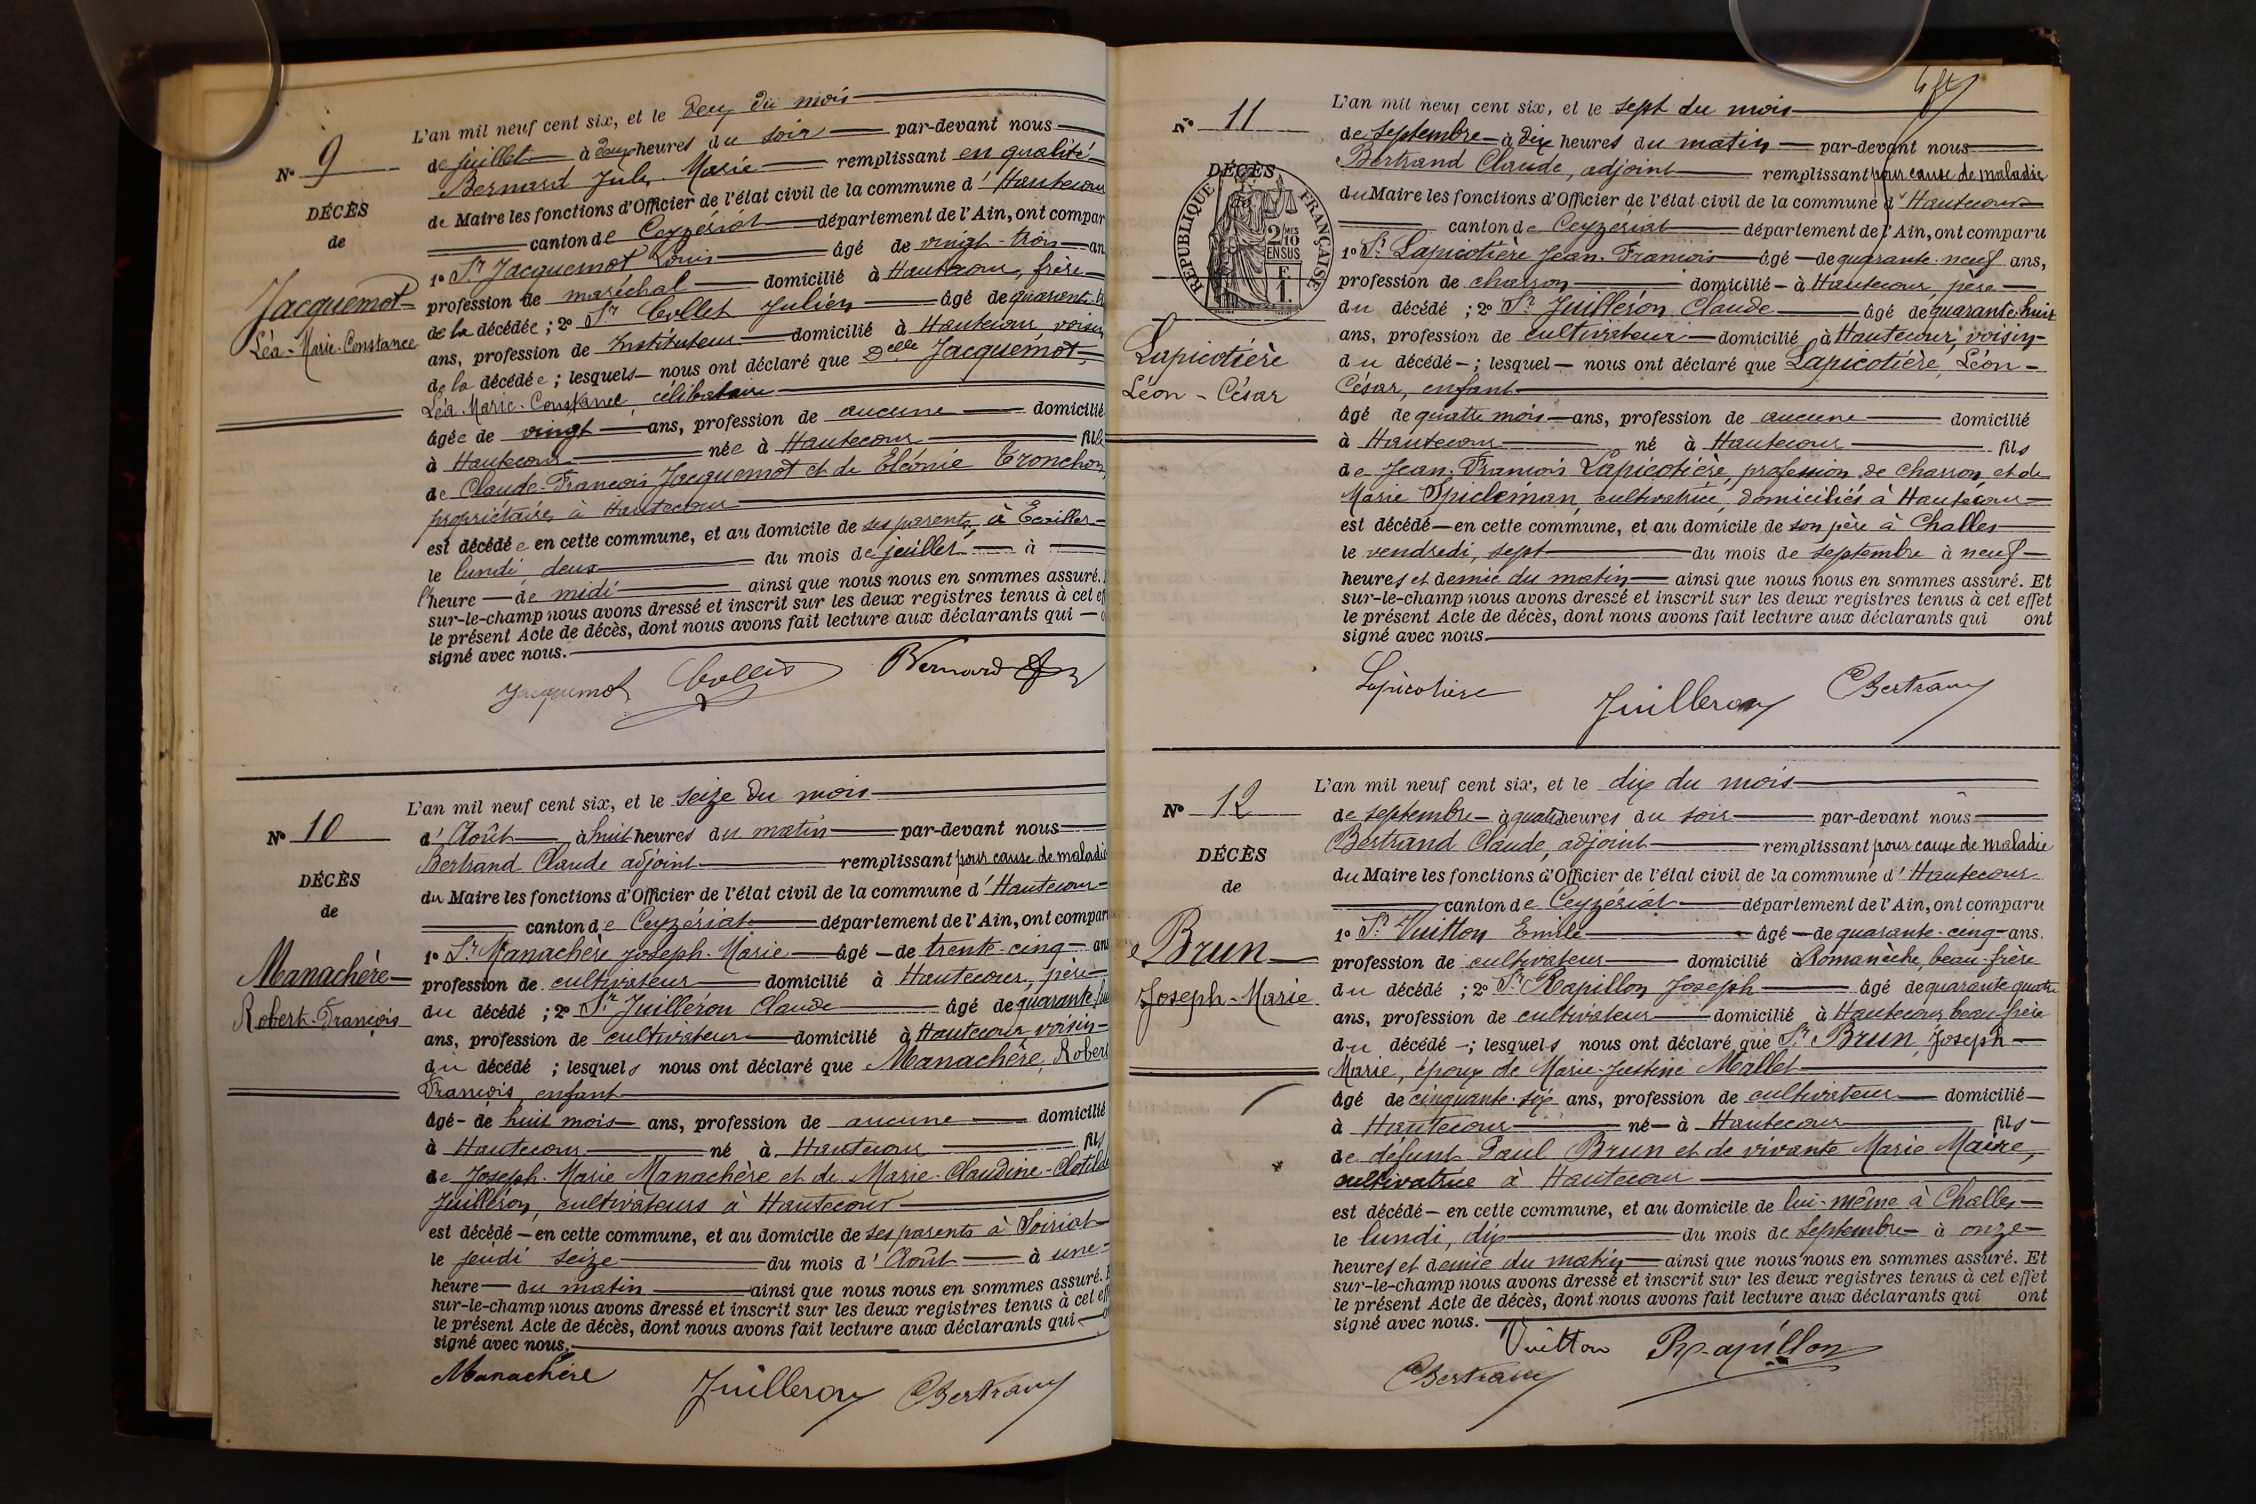 N° 9
DÉCÈS
de
Jacquemot
Léa-Marie-Constance
L'an mil neuf cent six, et le deux du mois
de juillet à deux heures du soir par-devant nous
Bernard Jules Marie remplissant en qualité
de Maire les fonctions d'Officier de l'état civil de la commune d'Hautecour
canton de Ceyzériat département de l'Ain, ont compar
1° Sr Jacquemot Louis âgé de vingt-trois an
profession de maréchal domicilié à Hautecour, frère
de la décédée ; 2° Sr Collet Julien âgé de
ans, profession de Instituteur domicilié à Hautecour, voisin
de la décédée ; lesquels nous ont déclaré que Delle Jacquemot,
Léa-Marie-Constance, célibataire
âgée de vingt ans, profession de aucune domicilié
à Hautecour née à Hautecour fille
de Claude-François Jacquemot et de Eléonie Tronchon
propriétaires à Hautecour
est décédée en cette commune, et au domicile de ses parents, à
le lundi deux du mois de juillet à
l'heure de midi ainsi que nous nous en sommes assuré.
sur-le-champ nous avons dressé et inscrit sur les deux registres tenus à cet ef
le présent Acte de décès, dont nous avons fait lecture aux déclarants qui
signé avec nous.
Jacquemot Collet Bernard
N° 10
DÉCÈS
de
Manachère
Robert-François
L'an mil neuf cent six, et le seize du mois
d'Août à huit heures du matin par-devant nous
Bertrand Claude adjoint remplissant pour cause de maladie
du Maire les fonctions d'Officier de l'état civil de la commune d'Hautecour
canton de Ceyzériat département de l'Ain, ont comparu
1° Sr Manachère Joseph-Marie âgé de trente-cinq ans
profession de cultivateur domicilié à Hautecour, père
du décédé ; 2° Sr Juilléron Claude âgé de quarante-huit
ans, profession de cultivateur domicilié à Hautecour, voisin
du décédé ; lesquels nous ont déclaré que Manachère, Robert
François, enfant
âgé de huit mois ans, profession de aucune domicilié
à Hautecour né à Hautecour fils
de Joseph-Marie Manachère et de Marie-Claudine-Clotilde
Juilléron, cultivateurs à Hautecour
est décédé en cette commune, et au domicile de ses parents à Soiriat
le jeudi seize du mois d'Août à une
heure du matin ainsi que nous nous en sommes assuré.
sur-le-champ nous avons dressé et inscrit sur les deux registres tenus à cet eff
le présent Acte de décès, dont nous avons fait lecture aux déclarants qui
signé avec nous.
Manachère Juilleron CBertrand
N° 11
DÉCÈS
RÉPUBLIQUE FRANÇAISE
2/10 EN SUS
Lapicotière
Léon-César
L'an mil neuf cent six, et le sept du mois
de septembre à dix heures du matin par-devant nous
Bertrand Claude, adjoint remplissant pour cause de maladie
du Maire les fonctions d'Officier de l'état civil de la commune d'Hautecour
canton de Ceyzériat département de l'Ain, ont comparu
1° Sr Lapicotière Jean-François âgé de quarante-neuf ans,
profession de charron domicilié à Hautecour, père
du décédé ; 2° Sr Juilléron Claude âgé de quarante-huit
ans, profession de cultivateur domicilié à Hautecour, voisin
du décédé ; lesquel nous ont déclaré que Lapicotière, Léon-
César, enfant
âgé de quatre mois ans, profession de aucune domicilié
à Hautecour né à Hautecour fils
de Jean-François Lapicotière, profession de charron, et de
Marie Spicleman, cultivatrice, domiciliés à Hautecour
est décédé en cette commune, et au domicile de son père à Challes
le vendredi, sept du mois de septembre à neuf
heures et demie du matin ainsi que nous nous en sommes assuré. Et
sur-le-champ nous avons dressé et inscrit sur les deux registres tenus à cet effet
le présent Acte de décès, dont nous avons fait lecture aux déclarants qui ont
signé avec nous.
Lapicotière Juilleron CBertrand
N° 12
DÉCÈS
de
Brun
Joseph-Marie
L'an mil neuf cent six, et le dix du mois
de septembre à quatre heures du soir par-devant nous
Bertrand Claude, adjoint remplissant pour cause de maladie
du Maire les fonctions d'Officier de l'état civil de la commune d'Hautecour
canton de Ceyzériat département de l'Ain, ont comparu
1° Sr Vuitton Emile âgé de quarante-cinq ans.
profession de cultivateur domicilié à Romanèche, beau-frère
du décédé ; 2° Sr Rapillon Joseph âgé de quarante quatre
ans, profession de cultivateur domicilié à Hautecour, beau frère
du décédé ; lesquels nous ont déclaré que Sr Brun, Joseph
Marie, époux de Marie-Justine Mallet
âgé de cinquante-six ans, profession de cultivateur domicilié
à Hautecour né à Hautecour fils
de défunt Paul Brun et de vivante Marie Maire,
cultivatrice à Hautecour
est décédé en cette commune, et au domicile de lui-même à Challes
le lundi, dix du mois de Septembre à onze
heures et demie du matin ainsi que nous nous en sommes assuré. Et
sur-le-champ nous avons dressé et inscrit sur les deux registres tenus à cet effet
le présent Acte de décès, dont nous avons fait lecture aux déclarants qui ont
signé avec nous.
Vuitton Rapillon
CBertrand